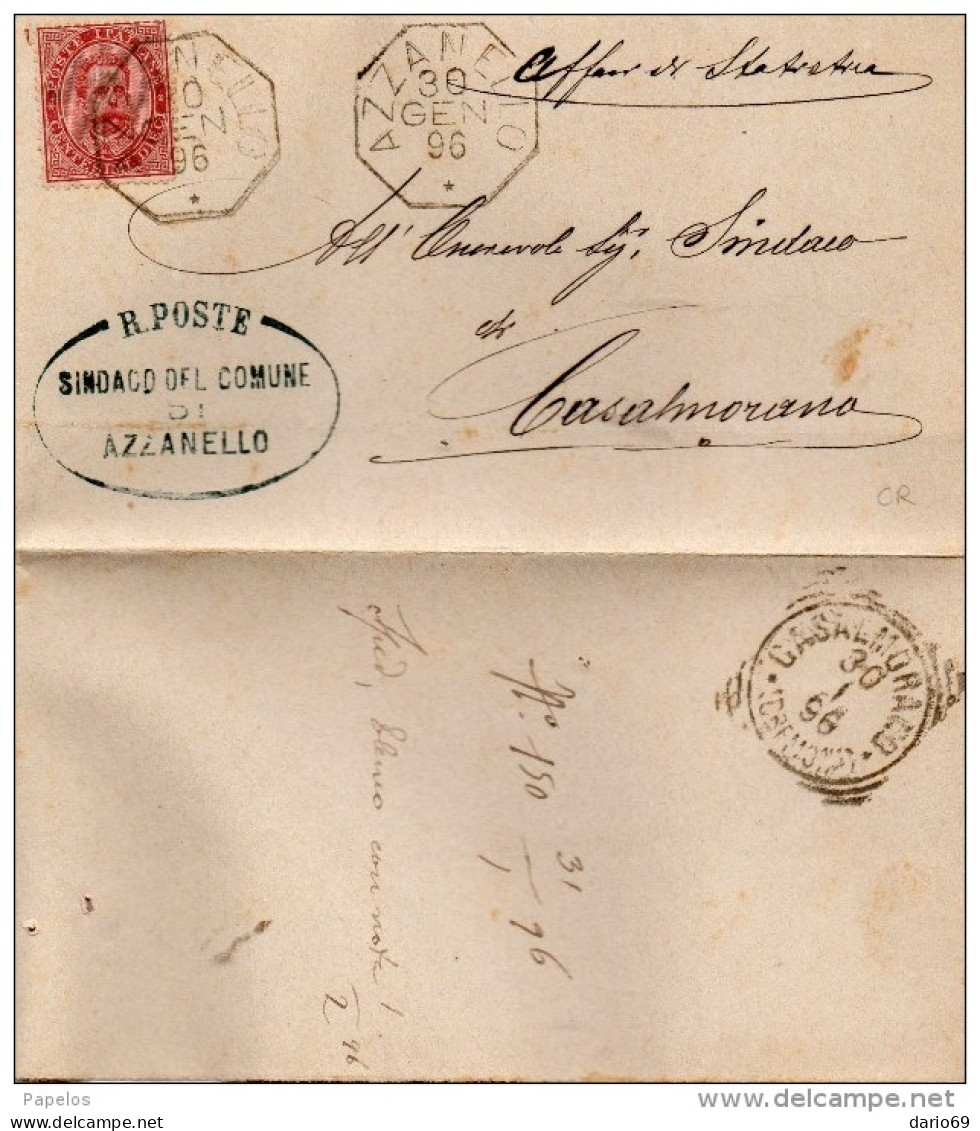 POSTE ITALIANE
CENTESIMI DIECI
AZZANELLO
30
GEN
96
AZZANELLO
30
GEN
96
Affari di Statistica
All' Onorevole Sig. Sindaco
di
Casalmorano
R. POSTE
SINDACO DEL COMUNE
DI
AZZANELLO
CR
CASALMORANO
30
1
96
(CREMONA)
N.º 150 31/1 96
Sped, Elenco con nota 1
96
Papelos
www.delcampe.net
dario69